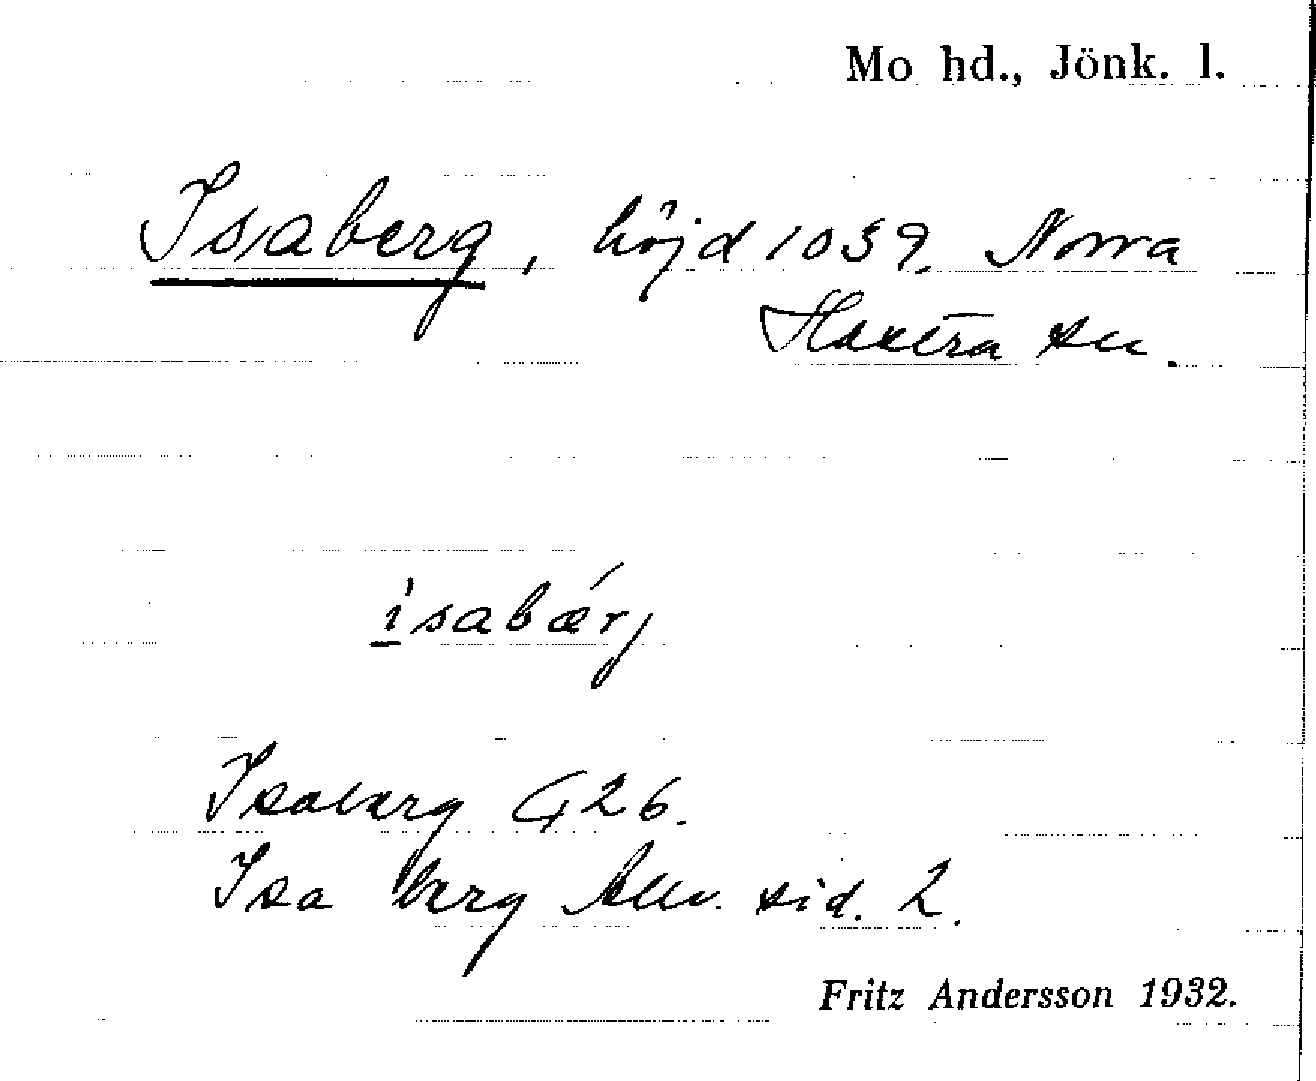 Mo hd., Jönk. l.
Isaberg, höjd 1039. Norra
Hestra sn.
ìsabǽrj
Isaberg G 26.
Isa berg Allv. sid. 2.
Fritz Andersson 1932.